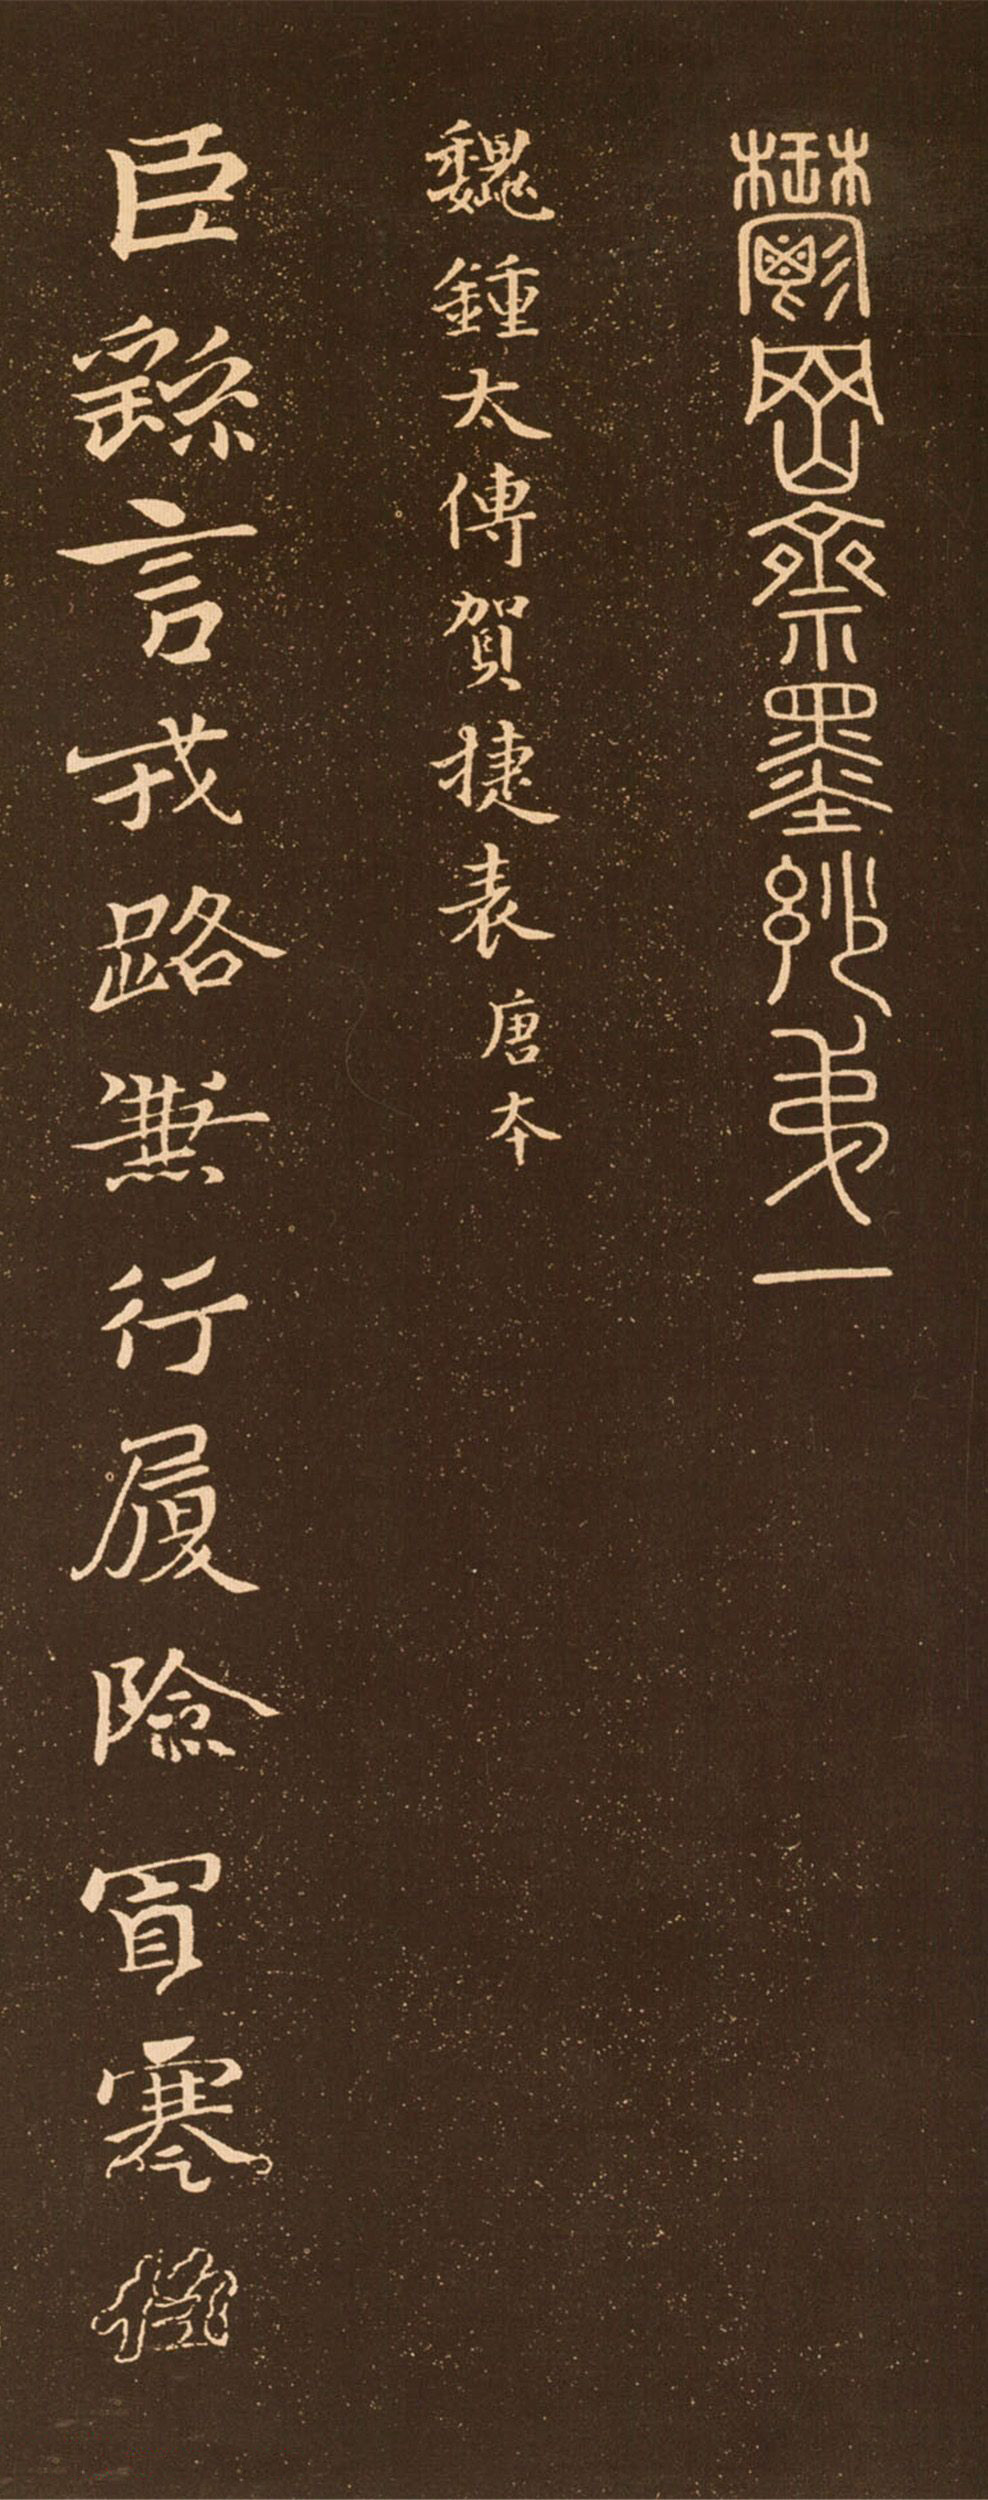 鬱岡齋墨妙弟一
魏鍾太傅賀捷表 唐本
臣繇言戎路兼行履險冒寒